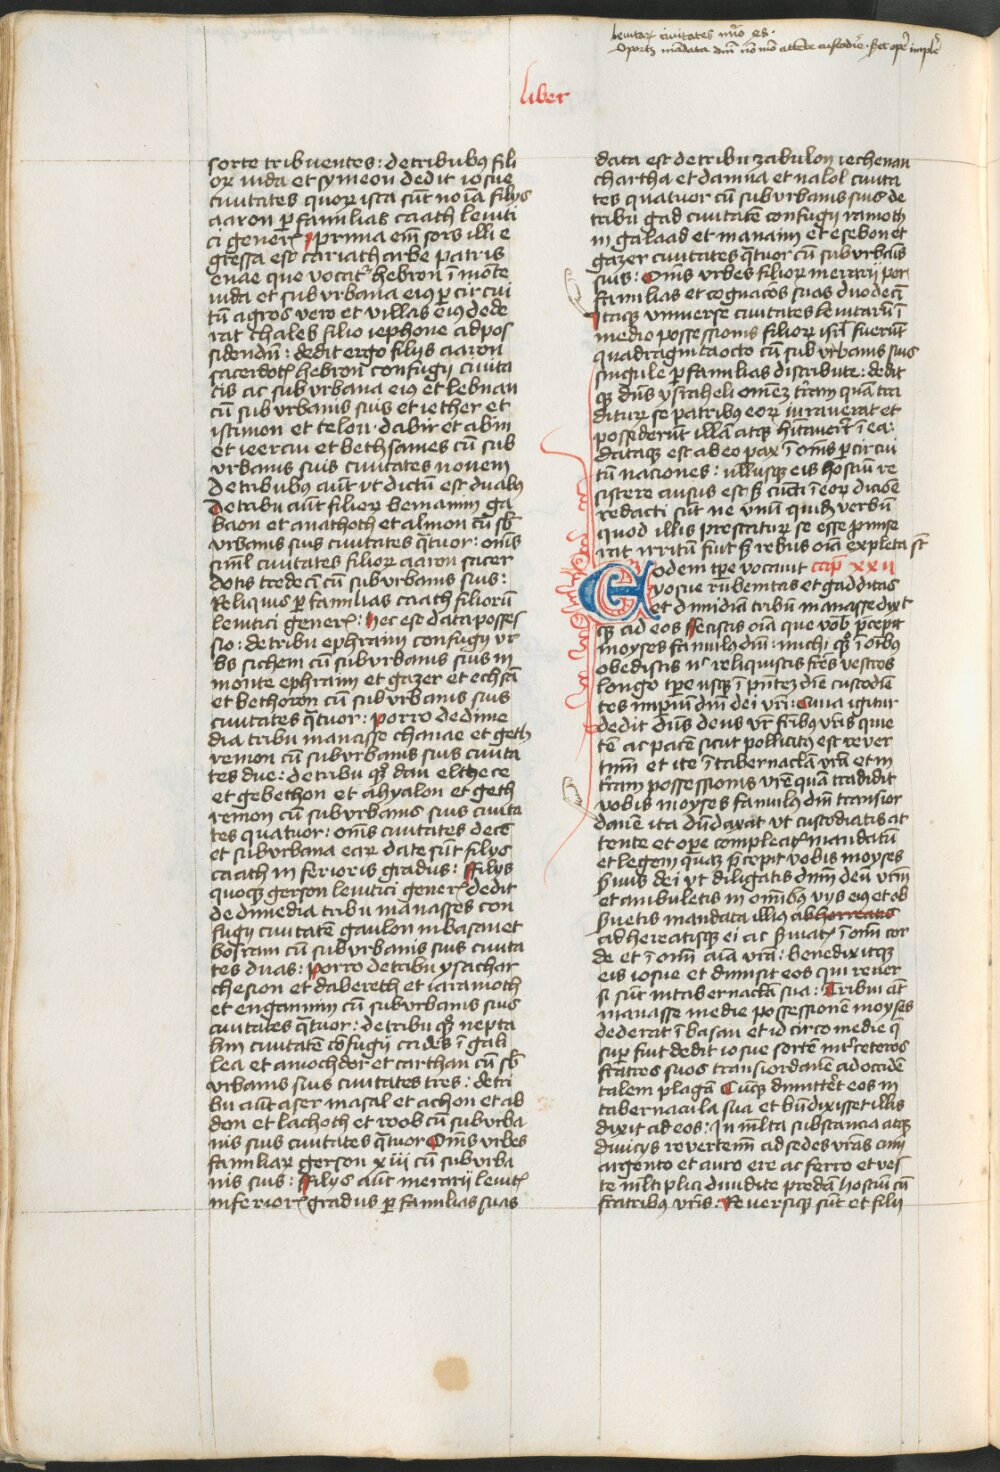 leuitaꝝ ciuitates nu͞o es.
Oportꝫ mādata dnī nō mō attēde custodiē. sꝫ ope͛ imple͛
liber
sorte tribuentes: de tribubꝯ fili
oꝝ iuda et symeon dedit iosue
ciuitates quoꝝ ista sūt noīa filijs
aaron ꝑ familias caath leuiti
ci gene͛ꝝ prima em̄ sors illi e
gressa est cariatharbe patris
enac que vocat᷑ hebron ī mōte
iuda et suburbana eiꝯ ꝑ circui
tū agros vero et villas eiꝯ dede
rat chales filio iephone ad pos
sidendū: dedit ergo filijs aaron
sacerdotꝭ hebron confugij ciuita
tis ac suburbana eiꝯ et lebnan
cū suburbanis suis et iether et
istimon et telon. dabir et abin
et ieerau et bethsames cū sub
vrbanis suis ciuitates nouem
de tribubꝯ aūt vt dictū est duabꝯ
De tribu aūt filioꝝ beniamin ga
baon et anathoth et almon cū sb͛
vrbanis suis ciuitates q̄tuor: om̄s
siml̄ ciuitates filioꝝ aaron sacer
dotis tredecī cū suburbanis suis:
Reliquis ꝑ familias caath filiorū
leuitici genꝰꝭ: hec est data posses
sio: de tribu ephraim confugij vr
bs sichem cū suburbanis suis in
monte ephraim et gazer et echsā
et bethoron cū suburbanis suis
ciuitates q̄tuor: porro de dime
dia tribu manasse chanae et geth
remon cū suburbanis suis ciuita
tes due: de tribu qꝫ dan elthece
et gebethon et ahyalon et geth
remon cū suburbanis suis ciuita
tes quatuor: om̄s ciuitates decē
et suburbana eaꝝ date sūt filijs
caath inferioris gradus: ffilijs
quoqꝫ gerson leuitici genꝰꝭ dedit
de dimedia tribu manasses con
fugij ciuitatē gaulon in basan et
bosram cū suburbanis suis ciuita
tes duas: porro de tribu ysachar
chesion et dabereth et iaramoth
et engannim cū suburbanis suis
ciuitates q̄tuor: de tribu qꝫ nepta
lim ciuitatē cōfugij cades ī gali
lea et amochdor et carthan cū sb͛
vrbanis suis ciuitates tres: de tri
bu aūt aser masal et achon et ab
don et lachoth et roob cū suburba
nis suis ciuitates q̄tuor Om̄s vrbes
familiaꝝ gerson xiii cū suburba
nis suis: ffilijs aūt merarij leuitꝭ
inferiorꝭ gradus ꝑ familias suas
data est de tribu zabulon iechenan
chartha et damna et nalol ciuita
tes quatuor cū suburbanis suis de
tribu gad ciuitatē confugij ramoth
in galaad et manaim et esebon et
gazer ciuitates q̄tuor cū suburbāis
suis: Om̄s vrbes filioꝝ merarij per
familias et cognacōs suas duodecī
Itaqꝫ vniuerse ciuitates leuitarū ī
medio possessionis filioꝝ isrl̄ fuerūt
quadraginta octo cū suburbanis suis
singule ꝑ familias distribute: dedit
qꝫ dn̄s ysraheli omēꝫ tr̄am quā tra
diturꝝ se patribꝯ eoꝝ iurauerat et
possederūt illā atqꝫ hītauerūt ī ea:
dataqꝫ est ab eo pax ī om̄s ꝑ circui
tū naciones: nullusqꝫ eis hostiū re
sistere ausus est sꝫ cūcti ī eoꝝ dicōē
redacti sūt ne vnū quidꝫ verbū
quod illis prestaturꝝ se esse ꝓmise
rat irritū fuit sꝫ rebus oīa expleta sr̄
Eodem tp̄e vocauit cap͞ xxii
yosue rubenitas et gadditas
et dimidiā tribū manasse dixit
qꝫ ad eos ffecistis oīa que vob͛ p̄cepit
moyses famulꝯ dn̄i: michi qꝫ ī oībꝯ
obedistis nͨ reliquistis frēs vestros
longo tp̄e usqꝫ ī pn̄teꝫ diē custodiē
tes impiū dn̄i dei vr̄i: Quia igitur
dedit dn̄s deus vr̄ fr̄ibꝯ vr̄is quie
tē ac pacē sicut pollicitꝯ est rever
timī et ite ī tabernacl̄a vr̄a et in
tr̄am possessionis vr̄e quā tradidit
vobis moyses famulꝯ dn̄i transior
danē ita dūdaxat vt custodiatis at
tente et ope͛ compleatꝭ mandatū
et legem quaꝫ p̄cepit vobis moyses
s͛uus dei vt diligatis dnm̄ deū vr̄m
et ambuletis in om̄ibꝯ vijs eiꝯ et ob
s͛uetis mandata illiꝯ abhorreatis
adhereatisqꝫ ei ac s͛uiatꝭ ī om̄i cor
de et ī om̄i aīa vr̄a: benedixitqꝫ
eis iosue et dimisit eos qui reuer
si sūt in tabernacl̄a sua: Tribui aūt
manasse medie possessionē moyses
dederat ī basan et idcirco medie q̄
suꝑ fuit dedit iosue sortē int͛ ceteros
fratres suos transiordanē ad occidē
talem plagā Cūqꝫ dimitte͛t eos in
tabernacula sua et bn̄dixisset illis
dixit ad eos: In ml̄ta substancia atqꝫ
diuicijs revertemī ad sedes vr̄as cum
argento et auro ere ac ferro et ves
te ml̄tiplici diuidite predā hostiū cū
fratribꝯ vr̄is: Reuersiqꝫ sūt et filij